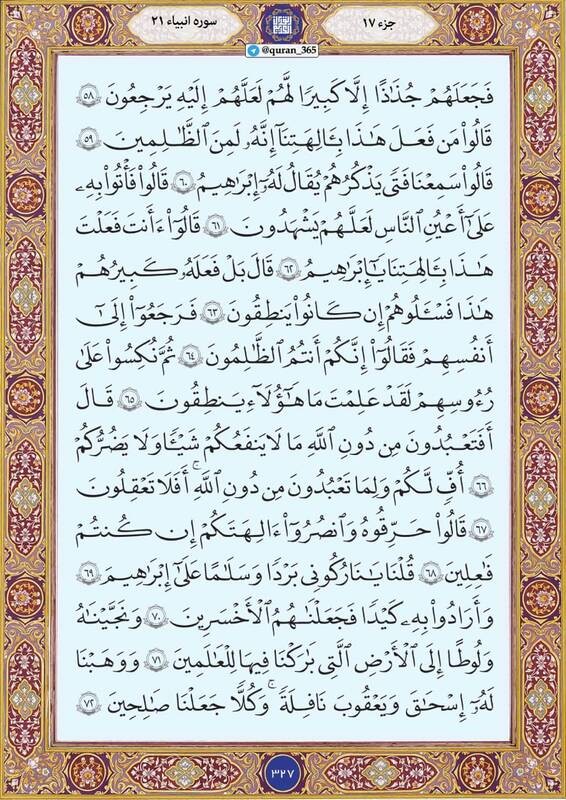 جزء ۱۷
سوره انبیاء ۲۱
@quran_365
فَجَعَلَهُمْ جُذَٰذًا إِلَّا كَبِيرًا لَّهُمْ لَعَلَّهُمْ إِلَيْهِ يَرْجِعُونَ ٥٨
قَالُوا۟ مَن فَعَلَ هَـٰذَا بِـَٔالِهَتِنَآ إِنَّهُۥ لَمِنَ ٱلظَّـٰلِمِينَ ٥٩
قَالُوا۟ سَمِعْنَا فَتًى يَذْكُرُهُمْ يُقَالُ لَهُۥٓ إِبْرَٰهِيمُ ٦٠ قَالُوا۟ فَأْتُوا۟ بِهِۦ
عَلَىٰٓ أَعْيُنِ ٱلنَّاسِ لَعَلَّهُمْ يَشْهَدُونَ ٦١ قَالُوٓا۟ ءَأَنتَ فَعَلْتَ
هَـٰذَا بِـَٔالِهَتِنَا يَـٰٓإِبْرَٰهِيمُ ٦٢ قَالَ بَلْ فَعَلَهُۥ كَبِيرُهُمْ
هَـٰذَا فَسْـَٔلُوهُمْ إِن كَانُوا۟ يَنطِقُونَ ٦٣ فَرَجَعُوٓا۟ إِلَىٰٓ
أَنفُسِهِمْ فَقَالُوٓا۟ إِنَّكُمْ أَنتُمُ ٱلظَّـٰلِمُونَ ٦٤ ثُمَّ نُكِسُوا۟ عَلَىٰ
رُءُوسِهِمْ لَقَدْ عَلِمْتَ مَا هَـٰٓؤُلَآءِ يَنطِقُونَ ٦٥ قَالَ
أَفَتَعْبُدُونَ مِن دُونِ ٱللَّهِ مَا لَا يَنفَعُكُمْ شَيْـًٔا وَلَا يَضُرُّكُمْ
٦٦ أُفٍّ لَّكُمْ وَلِمَا تَعْبُدُونَ مِن دُونِ ٱللَّهِ ۖ أَفَلَا تَعْقِلُونَ
٦٧ قَالُوا۟ حَرِّقُوهُ وَٱنصُرُوٓا۟ ءَالِهَتَكُمْ إِن كُنتُمْ
فَـٰعِلِينَ ٦٨ قُلْنَا يَـٰنَارُ كُونِى بَرْدًا وَسَلَـٰمًا عَلَىٰٓ إِبْرَٰهِيمَ ٦٩
وَأَرَادُوا۟ بِهِۦ كَيْدًا فَجَعَلْنَـٰهُمُ ٱلْأَخْسَرِينَ ٧٠ وَنَجَّيْنَـٰهُ
وَلُوطًا إِلَى ٱلْأَرْضِ ٱلَّتِى بَـٰرَكْنَا فِيهَا لِلْعَـٰلَمِينَ ٧١ وَوَهَبْنَا
لَهُۥٓ إِسْحَـٰقَ وَيَعْقُوبَ نَافِلَةً ۖ وَكُلًّا جَعَلْنَا صَـٰلِحِينَ ٧٢
۳۲۷